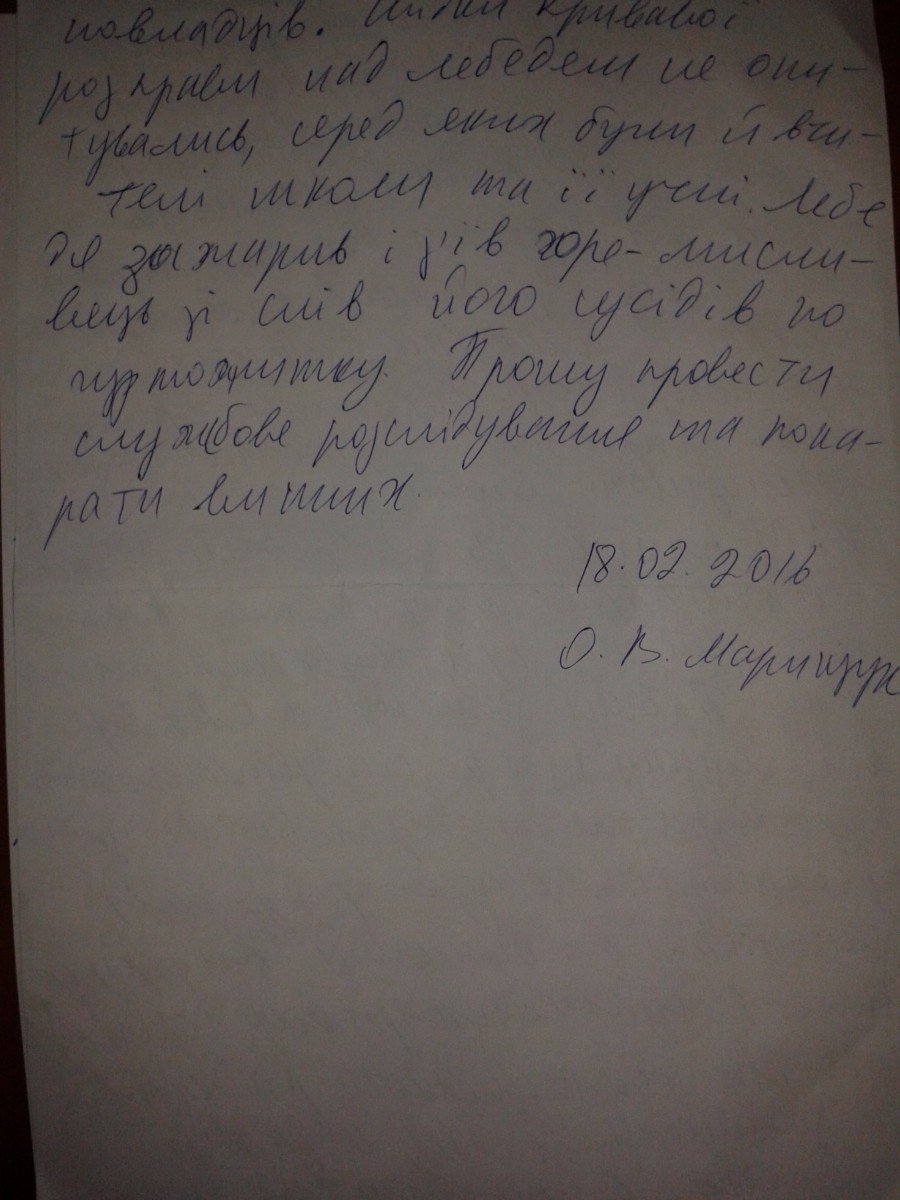 новладців. Свідки кривавої
розправи над лебедем не опи-
тувались, серед яких були й вчи-
телі школи та її учні. Лебе
дя зажарив і з'їв горе-мисли-
вець зі слів його сусідів по
гуртожитку. Прошу провести
службове розслідування та пока-
рати винних.
18.02.2016
О. В. Марищук